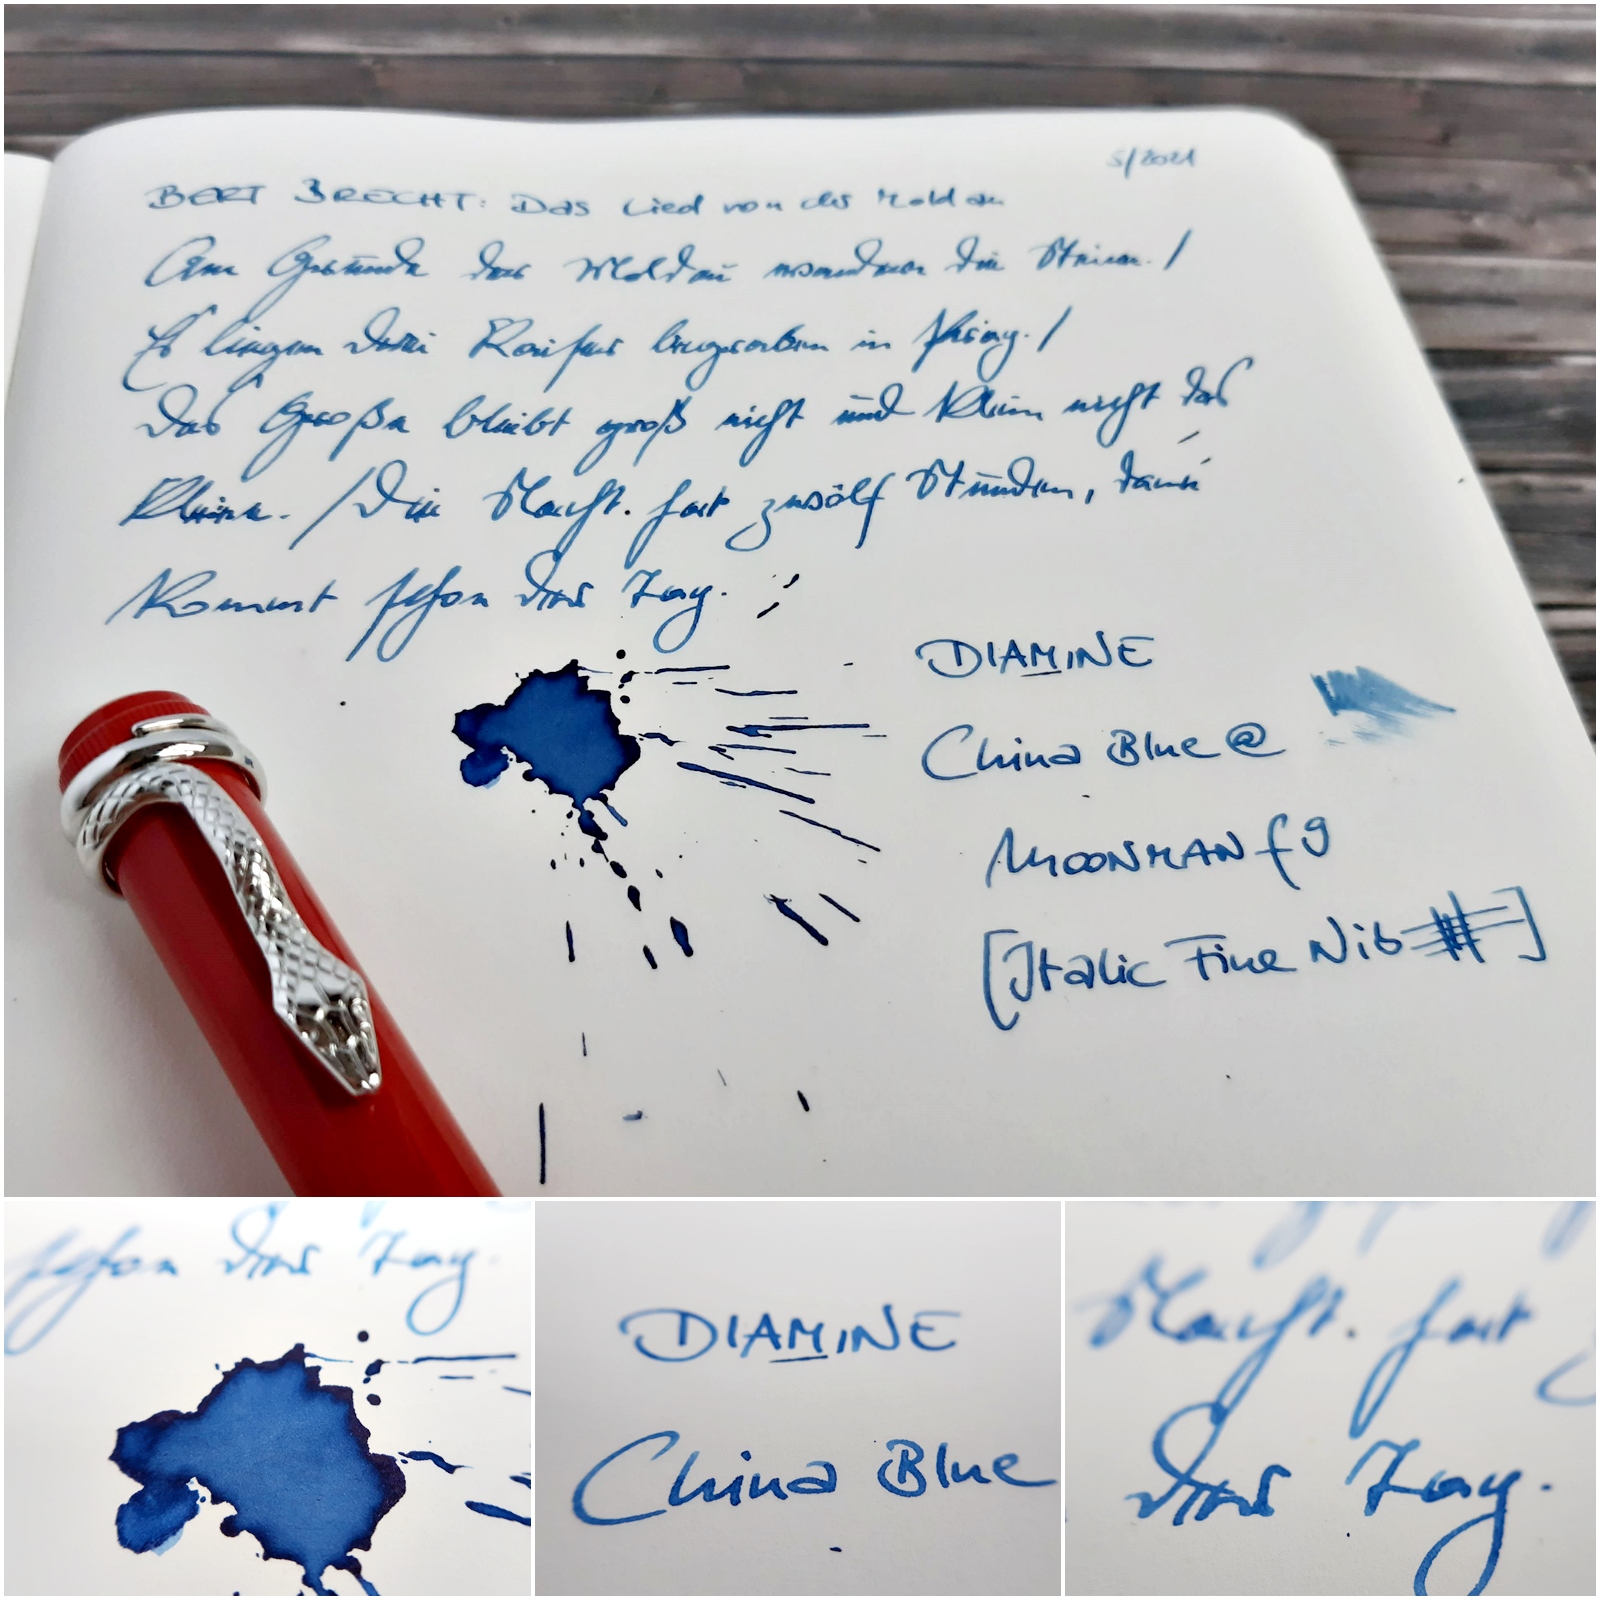 5/2021
BERT BRECHT: Das Lied von der Moldau
Am Grunde der Moldau wandern die Steine. /
Es liegen drei Kaiser begraben in Prag. /
Das Große bleibt groß nicht und klein nicht das
Kleine. / Die Nacht. hat zwölf Stunden, dann
kommt schon der Tag.
DIAMINE
China Blue @
MOONMAN f9
[Italic Fine Nib ]
schon der Tag.
DIAMINE
China Blue
Nacht. hat
der Tag.